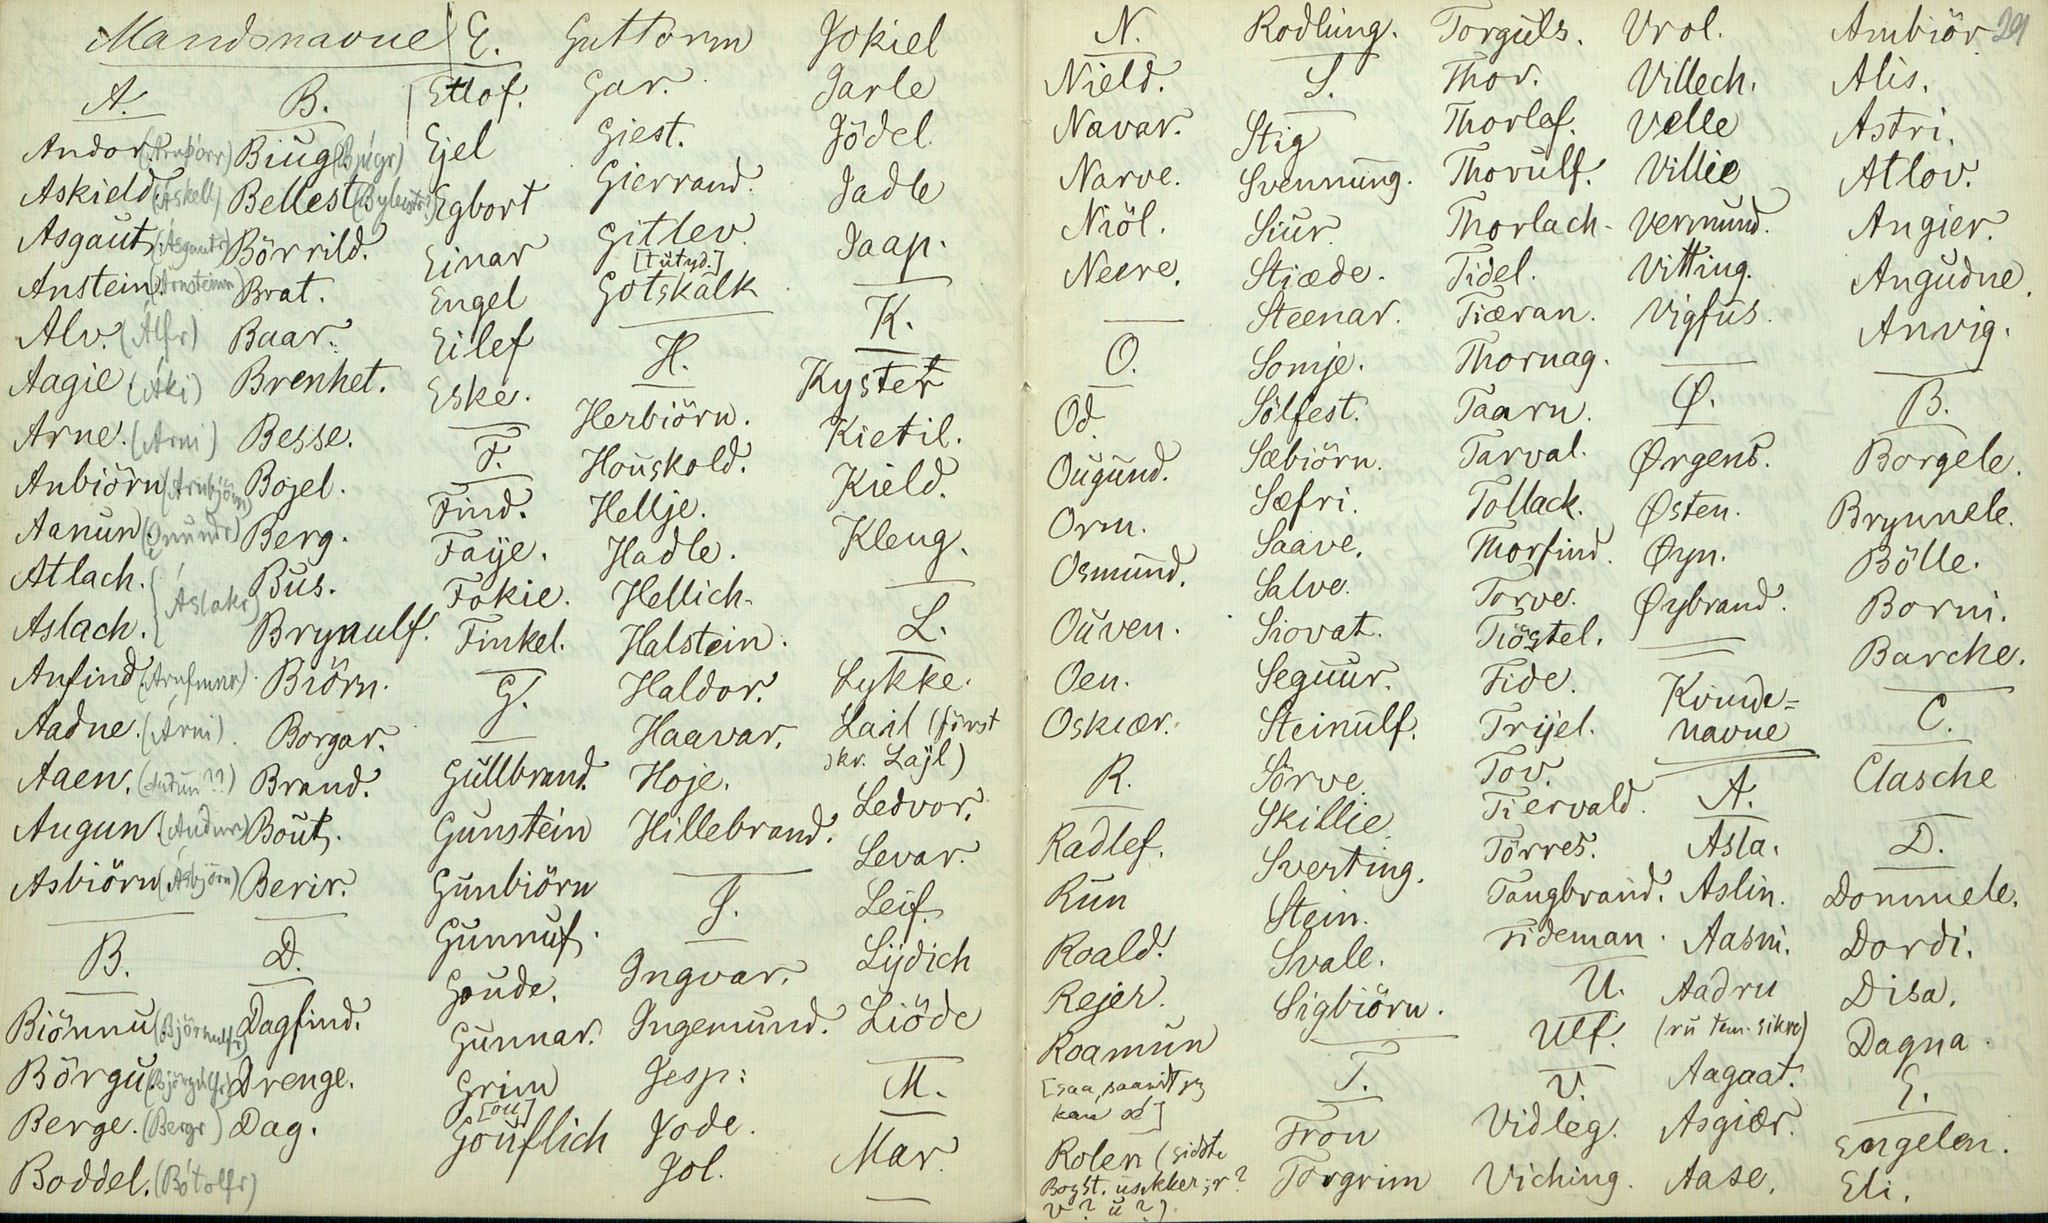 Mandsnavne
A.
Andor. (Arnþórr)
Askield (Áskell)
Asgaut. (Ásgautr)
Anstein. (Arnsteinn)
Alv. (Álfr)
Aagie. (Áki)
Arne. (Arni)
Anbiörn (Arnbjörn)
Aanun. (Önundr)
Atlach.
Aslach. (Áslakr)
Anfind (Arnfinnr).
Aadne. (Árni).
Aaen. (Auðun??)
Augun. (Auðunn)
Asbiörn. (Ásbjörn)
B.
Biönnu. (Björnulfr)
Börgu. (Björgulfr)
Berge. (Bergr)
Boddel. (Bótolfr)
B.
Biug. (Bjúgr)
Bellest. (Byleistr?)
Börrild.
Brat.
Baar.
Brenhet.
Besse.
Bojel.
Berg.
Bus.
Brynulf.
Biörn.
Borgar.
Brand.
Bout.
Berir.
D.
Dagfind.
Drenge.
Dag.
E.
Ellof.
Ejel
Egbort
Einar
Engel
Eilef
Eske.
F.
Find.
Faÿe.
Fokie.
Finkel.
G.
Gullbrand.
Gunstein
Gunbiörn
Gunnuf.
Goude.
Gunnar.
Grim
[ou]
Gouflich
Guttorm
Gar.
Giest.
Gierrand.
Gitlev.
[tütyd.]
Gotskalk
H.
Herbiörn.
Houskold.
Hellje.
Hadle.
Hellich.
Halstein.
Haldor.
Haavar.
Hoje.
Hillebrand.
J.
Ingvar.
Ingemund.
Jesp:
Jode.
Jol.
Jokiel
Jarle
Jödel.
Jadle
Jaap.
K.
Kyster
Kietil.
Kield.
Kleng.
L.
Lykke.
Lail (först
skr. Laÿl)
Ledvor.
Levar.
Leif.
Lÿdich
Liöde
M.
Mar.
29
N.
Nield.
Navar.
Narve.
Niöl.
Neere.
O.
Od.
Ougund.
Orm.
Osmund.
Ouven.
Oen.
Oskiær.
R.
Radlef.
Run
Roald.
Rejer.
Roamun
[saa, saavidt jeg
kan se]
Rolen (sidste
Bogst. usikker; r?
v? u?)
Rodlung.
S.
Stig
Svennung.
Siur.
Stiæde.
Steenar.
Somje.
Sölfest.
Sæbiörn.
Sæfri.
Saave.
Salve.
Siovat.
Seguur.
Steinulf.
Sörve.
Skillie.
Sverting.
Stein.
Svale.
Sigbiörn.
T.
Tron
Torgrim
Torguls.
Thor.
Thorlef.
Thorulf.
Thorlach.
Tidel.
Tiæran.
Thornag.
Taarn.
Tarval.
Tollack.
Thorfind.
Torve.
Tiöstel.
Tide.
Trijel.
Tov.
Tiervald.
Törres.
Tangbrand.
Tideman.
U.
Ulf.
V.
Vidleg.
Viching.
Vrol.
Villech.
Velle
Villie
Vermund.
Vitting.
Vigfus.
Ø.
Ørgens.
Østen.
Øyn.
Øybrand.
Kvinde=
navne
A.
Asla.
Aslin.
Aasni.
Aadru
(ru tem. sikre)
Aagaat.
Asgiær.
Aase.
Ambiör
Alis.
Astri.
Atlov.
Angier.
Angudne.
Anvig.
B.
Borgele.
Brynnele.
Bölle.
Borni.
Barche.
C.
Clasche
D.
Dommele.
Dordi.
Disa.
Dagna.
E.
Engelen.
Eli.